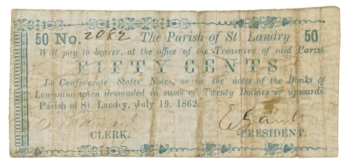 50 No. 2062 The Parish of St Landry 50
Will pay to bearer, at the office of the Treasurer of said Parish
FIFTY CENTS
In Confederate States Notes, or in the notes of the Banks of
Louisiana when demanded in sums of Twenty Dollars or upwards
Parish of St. Landry, July 19, 1862.
CLERK. PRESIDENT.